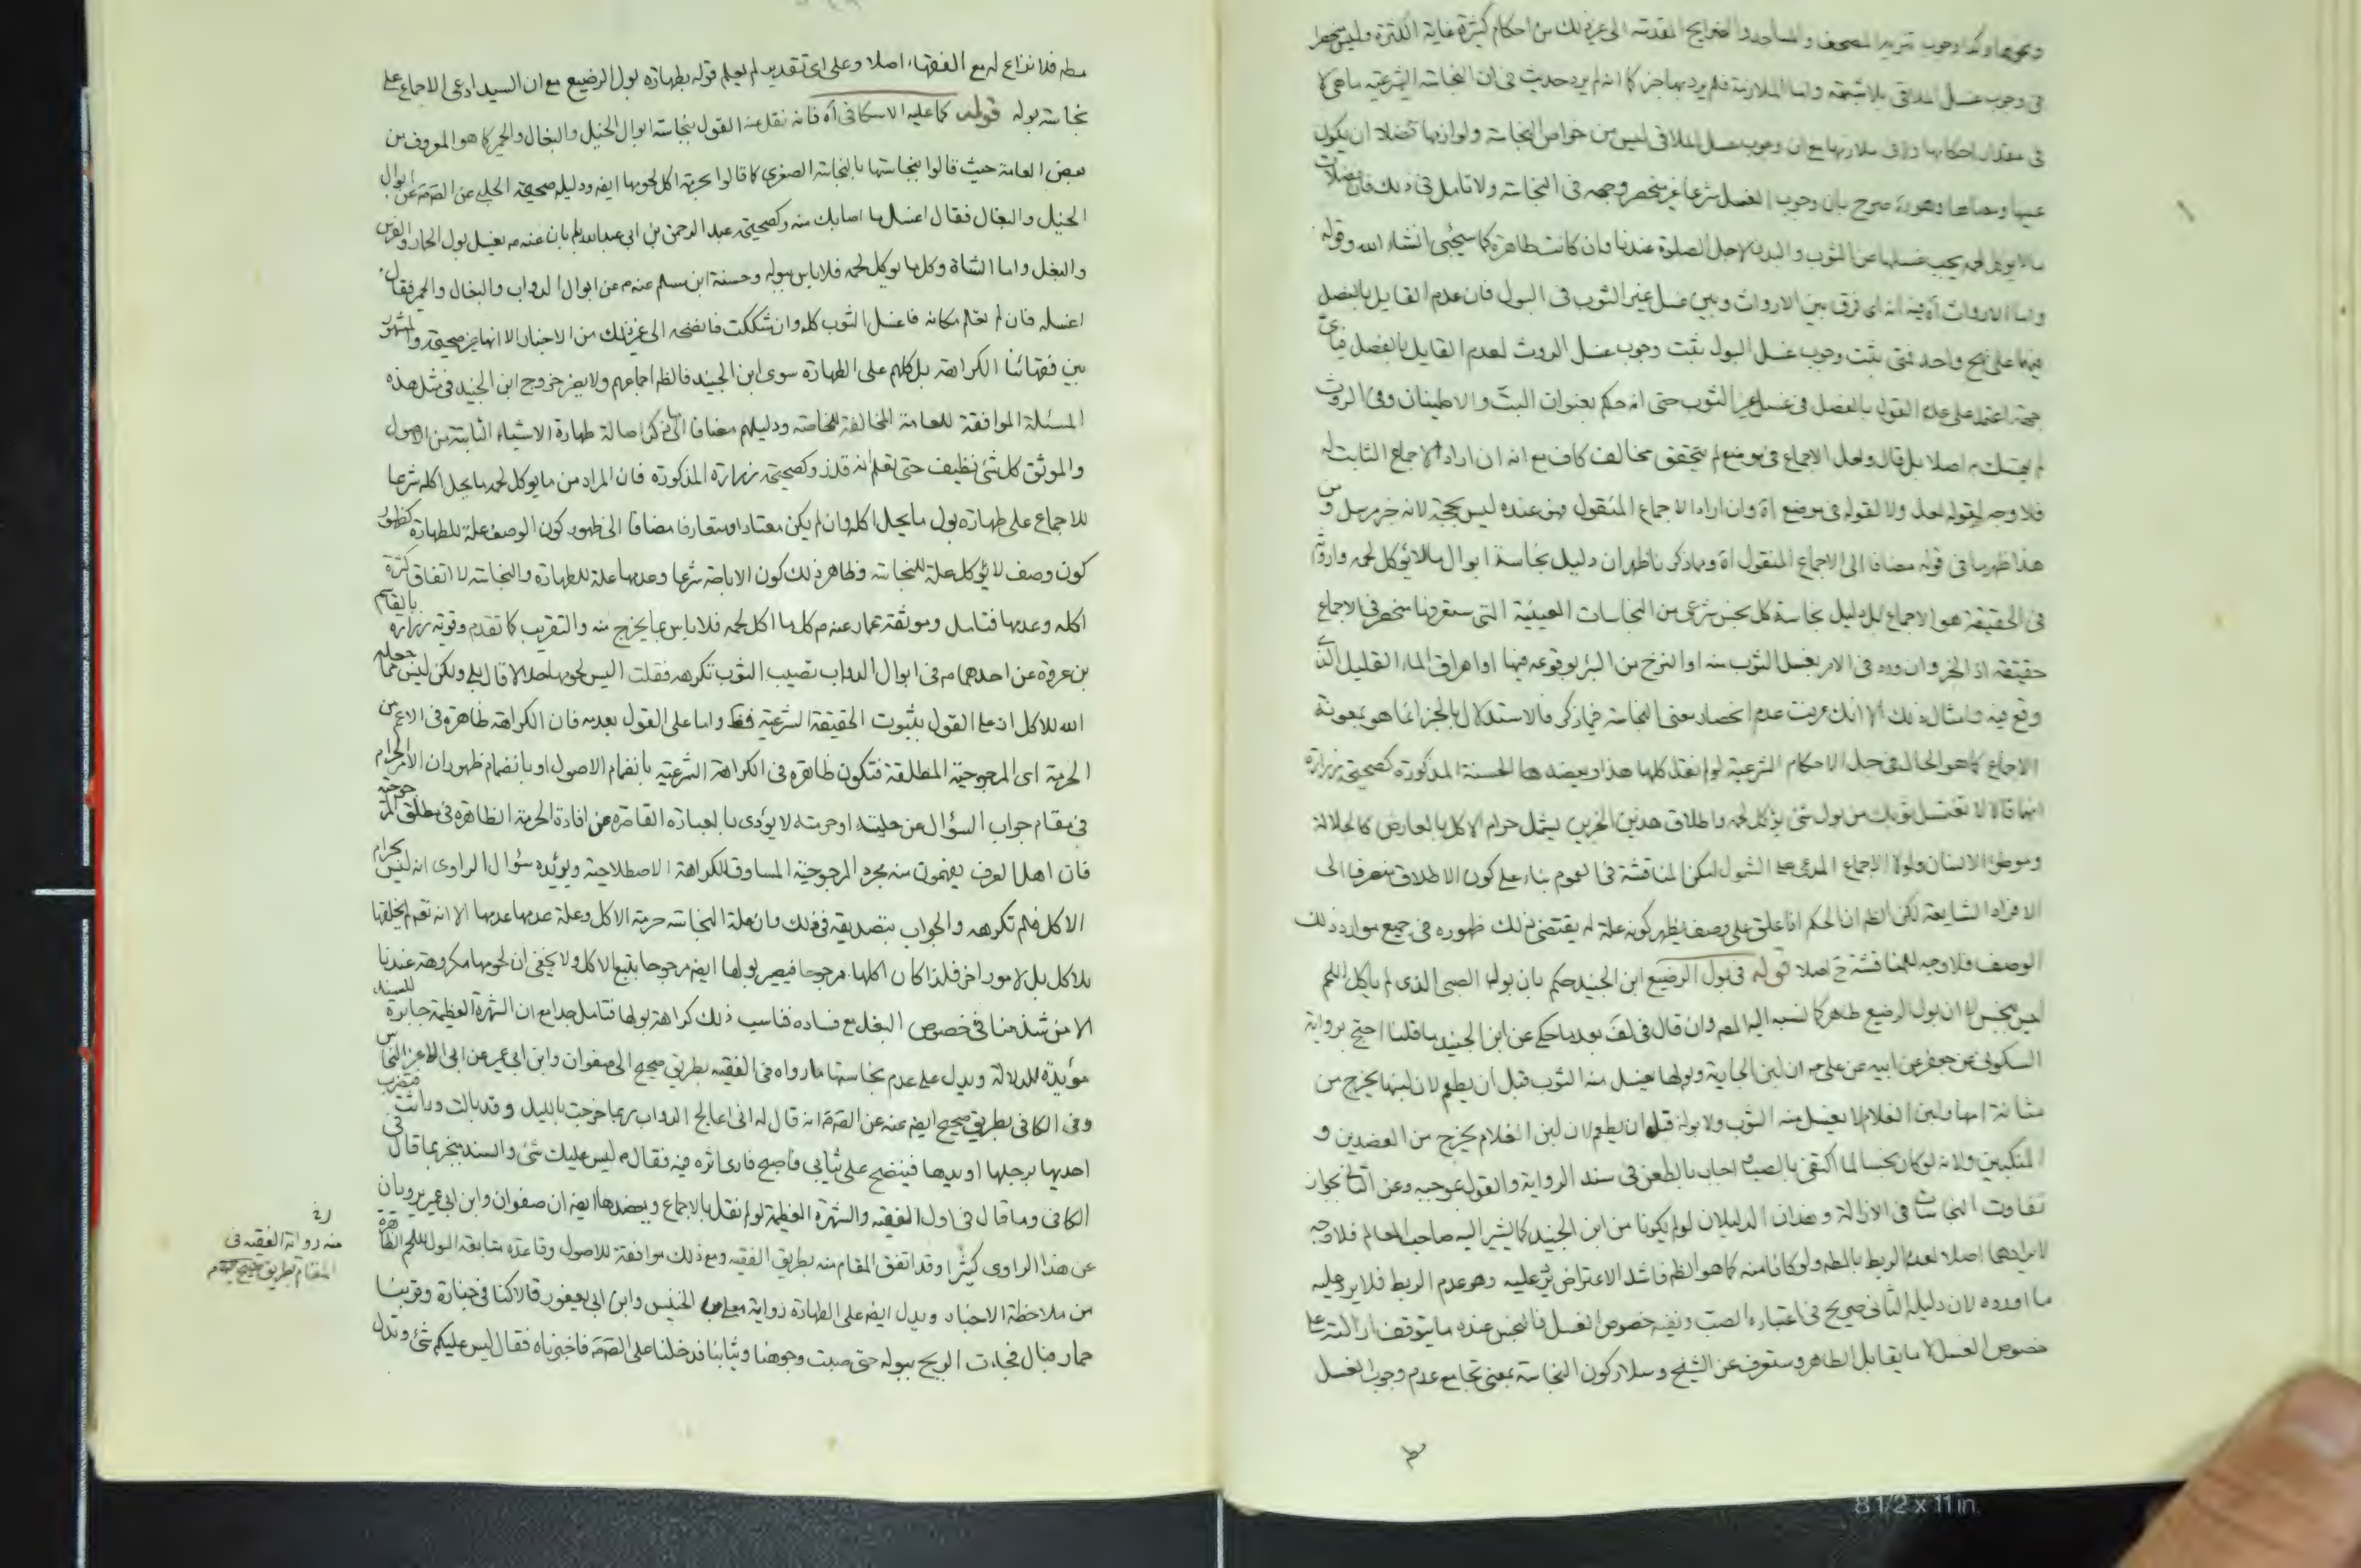 ونحوها وكذا وجوب تنزيه المصحف والمساجد والضرايح المقدسة الى غير ذلك من احكام كثيرة غاية الكثرة وليس منحصرا
في وجوب غسل الملاقي بلا شبهة واما الملازمة فلم يرد بها خبر كما انه لم يرد حديث في ان النجاسة الشرعية ماهي كما
في مقدار احكامها مع ان وجوب غسل الملاقي ليس من خواص النجاسة ولوازمها فضلا ان يكون
عينها ومعناها وهو ره صرح بان وجوب الغسل شرعا غير منحصر وجهه في النجاسة ولا تامل في ذلك فان فضلات
ما لا يوكل لحمه يجب غسلها عن الثوب والبدن لاجل الصلوة عندنا وان كانت طاهرة كما سيجئ انشاء الله وقوله
واما الاروات آه فيه انه اي فرق بين الاروات وبين غسل غير الثوب في البول فان عدم القايل بالفصل
فيهما على نهج واحد فمتى يثبت وجوب غسل البول يثبت وجوب غسل الروث لعدم القايل بالفصل
اعتمد على عدم القول بالفصل في غسل غير الثوب حتى انه حكم بعنوان البت والاطمينان وفي الروث
لم يتمسك به اصلا بل قال ولعل الاجماع في موضع لم يتحقق مخالف كاف مع انه ان اراد الاجماع الثابت له
فلا وجه لقوله لعل ولا لقوله في موضع آه وان اراد الاجماع المنقول فهو عنده ليس بحجة لانه خبر مرسل و من
هذا ظهر ما في قوله مضافا الى الاجماع المنقول آه ومما ذكرنا ظهر ان دليل نجاسة ابوال ما لا يؤكل لحمه واروثه
في الحقيقة هو الاجماع بل دليل نجاسة كل نجس شرعي من النجاسات العينية التي ستعرفها منحصر في الاجماع
حقيقة اذ الخبر وان ورد في الامر بغسل الثوب منه او النزح من البئر بوقوعه فيها او اهراق الماء القليل الذي
وقع فيه وامثال ذلك الا انك عرفت عدم انحصار معنى النجاسة فيما ذكر فالاستدلال بالخبر انما هو بمعونة
الاجماع كما هو الحال في جل الاحكام الشرعية لو لم نقل كلها هذا ويعضدها الحسنة المذكورة كصحيحتي زرارة
انهما قالا لا تغسل ثوبك من بول شئ يؤكل لحمه واطلاق هذين الخبرين يشمل حرام الاكل بالعارض كالجلالة
وموطوء الانسان ولولا الاجماع المدعى على الشمول لامكن المناقشة في العموم بناء على كون الاطلاق منصرفا الى
الافراد الشايعة لكن الظ ان الحكم اذا علق على وصف يظهر كونه علة له يقتضي ذلك ظهوره في جميع موارد ذلك
الوصف فلا وجه للمناقشة ح اصلا قوله في بول الرضيع ابن الجنيد حكم بان بول الصبي الذي لم ياكل اللحم
ليس بنجس لا ان بول الرضيع طاهر كما نسبه اليه المص وان قال في لف بعد ما حكى عن ابن الجنيد ما قلنا احتج برواية
السكوني عن جعفر عن ابيه عن علي ع ان لبن الجارية وبولها يغسل منه الثوب قبل ان يطعم لان لبنها يخرج من
مثانة امها ولبن الغلام لا يغسل منه الثوب ولا بوله قبل ان يطعم لان لبن الغلام يخرج من العضدين و
المنكبين ولانه لو كان نجسا لما اكتفى بالصب اجاب بالطعن في سند الرواية والقول بموجبه وعن الثاني بجواز
تفاوت النجاسات في الازالة وهذان الدليلان لو لم يكونا من ابن الجنيد كما يشير اليه صاحب المعالم فلا وجه
لايرادهما اصلا لعدم الربط بالمط ولو كانا منه كما هو الظ فاشد الاعتراض عليه وهو عدم الربط فلا يرد عليه
ما اورده لان دليله الثاني صريح في اعتباره الصب ونفيه خصوص الغسل فالنجس عنده ما يتوقف ازالته على
خصوص الغسل لا ما يقابل الطاهر وستعرف عن الشيخ وسلار كون النجاسة بمعنى تجامع عدم وجوب الغسل
مطه فلا نزاع له مع الفقهاء اصلا وعلى اي تقدير لم يعلم قوله بطهارة بول الرضيع مع ان السيد ادعى الاجماع على
نجاسة بوله قوله كما عليه الاسكافي آه فانه نقل عنه القول بنجاسة ابوال الخيل والبغال والحمر كما هو المعروف من
بعض العامة حيث قالوا بنجاستها بالنجاسة الصغرى كما قالوا بحرمة اكل لحومها ايضه ودليله صحيحة الحلبي عن الصم عن ابوال
الخيل والبغال فقال اغسل ما اصابك منه وكصحيحة عبد الرحمن بن ابي عبد الله عنه م يغسل بول الحمار والفرس
والبغل واما الشاة وكل ما يوكل لحمه فلا باس ببوله وحسنة ابن مسلم عنه م عن ابوال الدواب والبغال والحمر فقال
اغسله فان لم تعلم مكانه فاغسل الثوب كله وان شككت فانضحه الى غير ذلك من الاخبار الا انها غير صحيحة والمشهور
بين فقهائنا الكراهة بل كلهم على الطهارة سوى ابن الجنيد فالظ اجماعهم ولا يضر خروج ابن الجنيد في مثل هذه
المسئلة الموافقة للعامة المخالفة للخاصة ودليلهم مضافا الى ما ذكر اصالة طهارة الاشياء الثابتة من الاصول
والموثق كل شئ نظيف حتى تعلم انه قذر وكصحيحتي زرارة المذكورة فان المراد من ما يوكل لحمه ما يحل اكله شرعا
للاجماع على طهارة بول ما يحل اكله وان لم يكن معتادا ومتعارفا مضافا الى ظهور كون الوصف علة للطهارة كظهور
كون وصف لا يؤكل علة للنجاسة وظاهر ذلك كون الاباحة شرعا وعدمها علة للطهارة والنجاسة لا اتفاق كثرة
اكله وعدمها فتامل وموثقة عمار عنه م كل ما اكل لحمه فلا باس بما يخرج منه والتقريب كما تقدم وقوية زرارة بالقاسم
بن عروة عن احدهما م في ابوال الدواب تصيب الثوب تكرهه فقلت اليس لحومها حلالا قال بلى ولكن ليس مما جعله
الله للاكل اذ على القول بثبوت الحقيقة الشرعية فظ واما على القول بعدمه فان الكراهة ظاهرة في الاعم من
الحرمة اي المرجوحية المطلقة فتكون ظاهرة في الكراهة الشرعية بانضمام الاصول او بانضمام ظهور ان الامر الحرام
في مقام جواب السؤال عن حليته او حرمته لا يؤدى بالعبارة القاصرة عن افادة الحرمة الظاهرة في مطلق المرجوحية
فان اهل العرف يفهمون منه مجرد المرجوحية المساوق للكراهة الاصطلاحية ويؤيده سؤال الراوي انه ليس بحرام
الاكل فلم تكرهه والجواب بتصديقه في ذلك وان علة النجاسة حرمة الاكل وعلة عدمها عدمها الا انه تعه لم يخلقها
للاكل بل لامور اخر فلذا كان اكلها مرجوحا فيصير بولها ايضه مرجوحا بتبع الاكل ولا يخفى ان لحومها مكروهة عندنا
الا من شذ منا في خصوص البغل مع فساده فناسب ذلك كراهة بولها فتامل جدا مع ان الشهرة العظيمة جابرة للسند
مؤيدة للدلالة ويدل على عدم نجاستها ما رواه في الفقيه بطريق صحيح الى صفوان وابن ابي عمير عن ابي الاعز النخاس
وفي الكافي بطريق صحيح ايضه عنه عن الصم انه قال له اني اعالج الدواب ربما خرجت بالليل وقد بالت وراثت فيضرب
احديها برجلها او يدها فينضح على ثيابي فاصبح فارى اثره فيه فقال م ليس عليك شئ والسند ينجبر بما قال في
الكافي وما قال في اول الفقيه والشهرة العظيمة لو لم نقل بالاجماع ويعضدها ايضه ان صفوان وابن ابي عمير يرويان
عن هذا الراوي كثيرا وقد اتفق المقام منه بطريق الفقيه ومع ذلك موافقة للاصول وقاعدة متابعة البول للحم الظاهرة
من ملاحظة الاخبار ويدل ايضه على الطهارة رواية معلى بن الخنيس وابن ابي يعفور قالا كنا في جنازة وقربنا
حمار فبال فجاءت الريح ببوله حتى صكت وجوهنا وثيابنا فدخلنا على الصم فاخبرناه فقال ليس عليكم شئ وتدل
منه رواية الفقيه في
المقام بطريق صحيح
8 1/2 x 11 in.